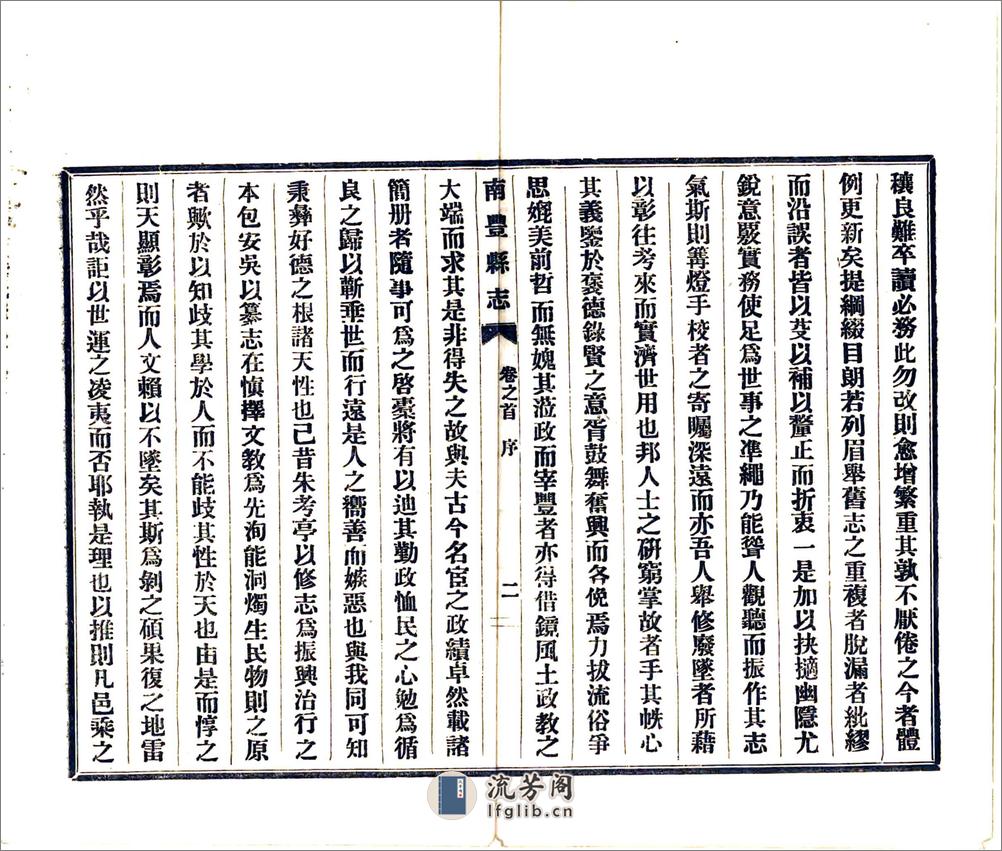 穰良難卒讀必務此勿改則愈增繁重其孰不厭倦之今者體
例更新矣提綱綴目朗若列眉舉舊志之重複者脫漏者紕繆
而沿誤者皆以芟以補以釐正而折衷一是加以抉擿幽隱尤
銳意覈實務使足爲世事之準繩乃能聳人觀聽而振作其志
氣斯則篝燈手校者之寄矚深遠而亦吾人舉修廢墜者所藉
以彰往考來而實濟世用也邦人士之硏窮掌故者手其帙心
其義鑒於褒德錄賢之意胥鼓舞奮興而各俛焉力拔流俗爭
思媲美前哲而無媿其涖政而宰豐者亦得借鏡風土政教之
南豐縣志 卷之首 序 二
大端而求其是非得失之故與夫古今名宦之政績卓然載諸
簡册者隨事可爲之啓橐將有以迪其勤政恤民之心勉爲循
良之歸以蘄垂世而行遠是人之嚮善而嫉惡也與我同可知
秉彝好德之根諸天性也己昔朱考亭以修志爲振興治行之
本包安吳以纂志在愼擇文教爲先洵能洞燭生民物則之原
者歟於以知歧其學於人而不能歧其性於天也由是而惇之
則天顯彰焉而人文賴以不墜矣其斯爲剝之碩果復之地雷
然乎哉詎以世運之凌夷而否耶執是理也以推則凡邑乘之
流芳阁
lfglib.cn